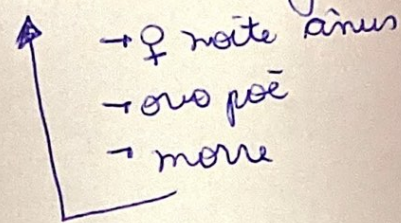 → ♀ noite ânus
→ ovo põe
→ morre